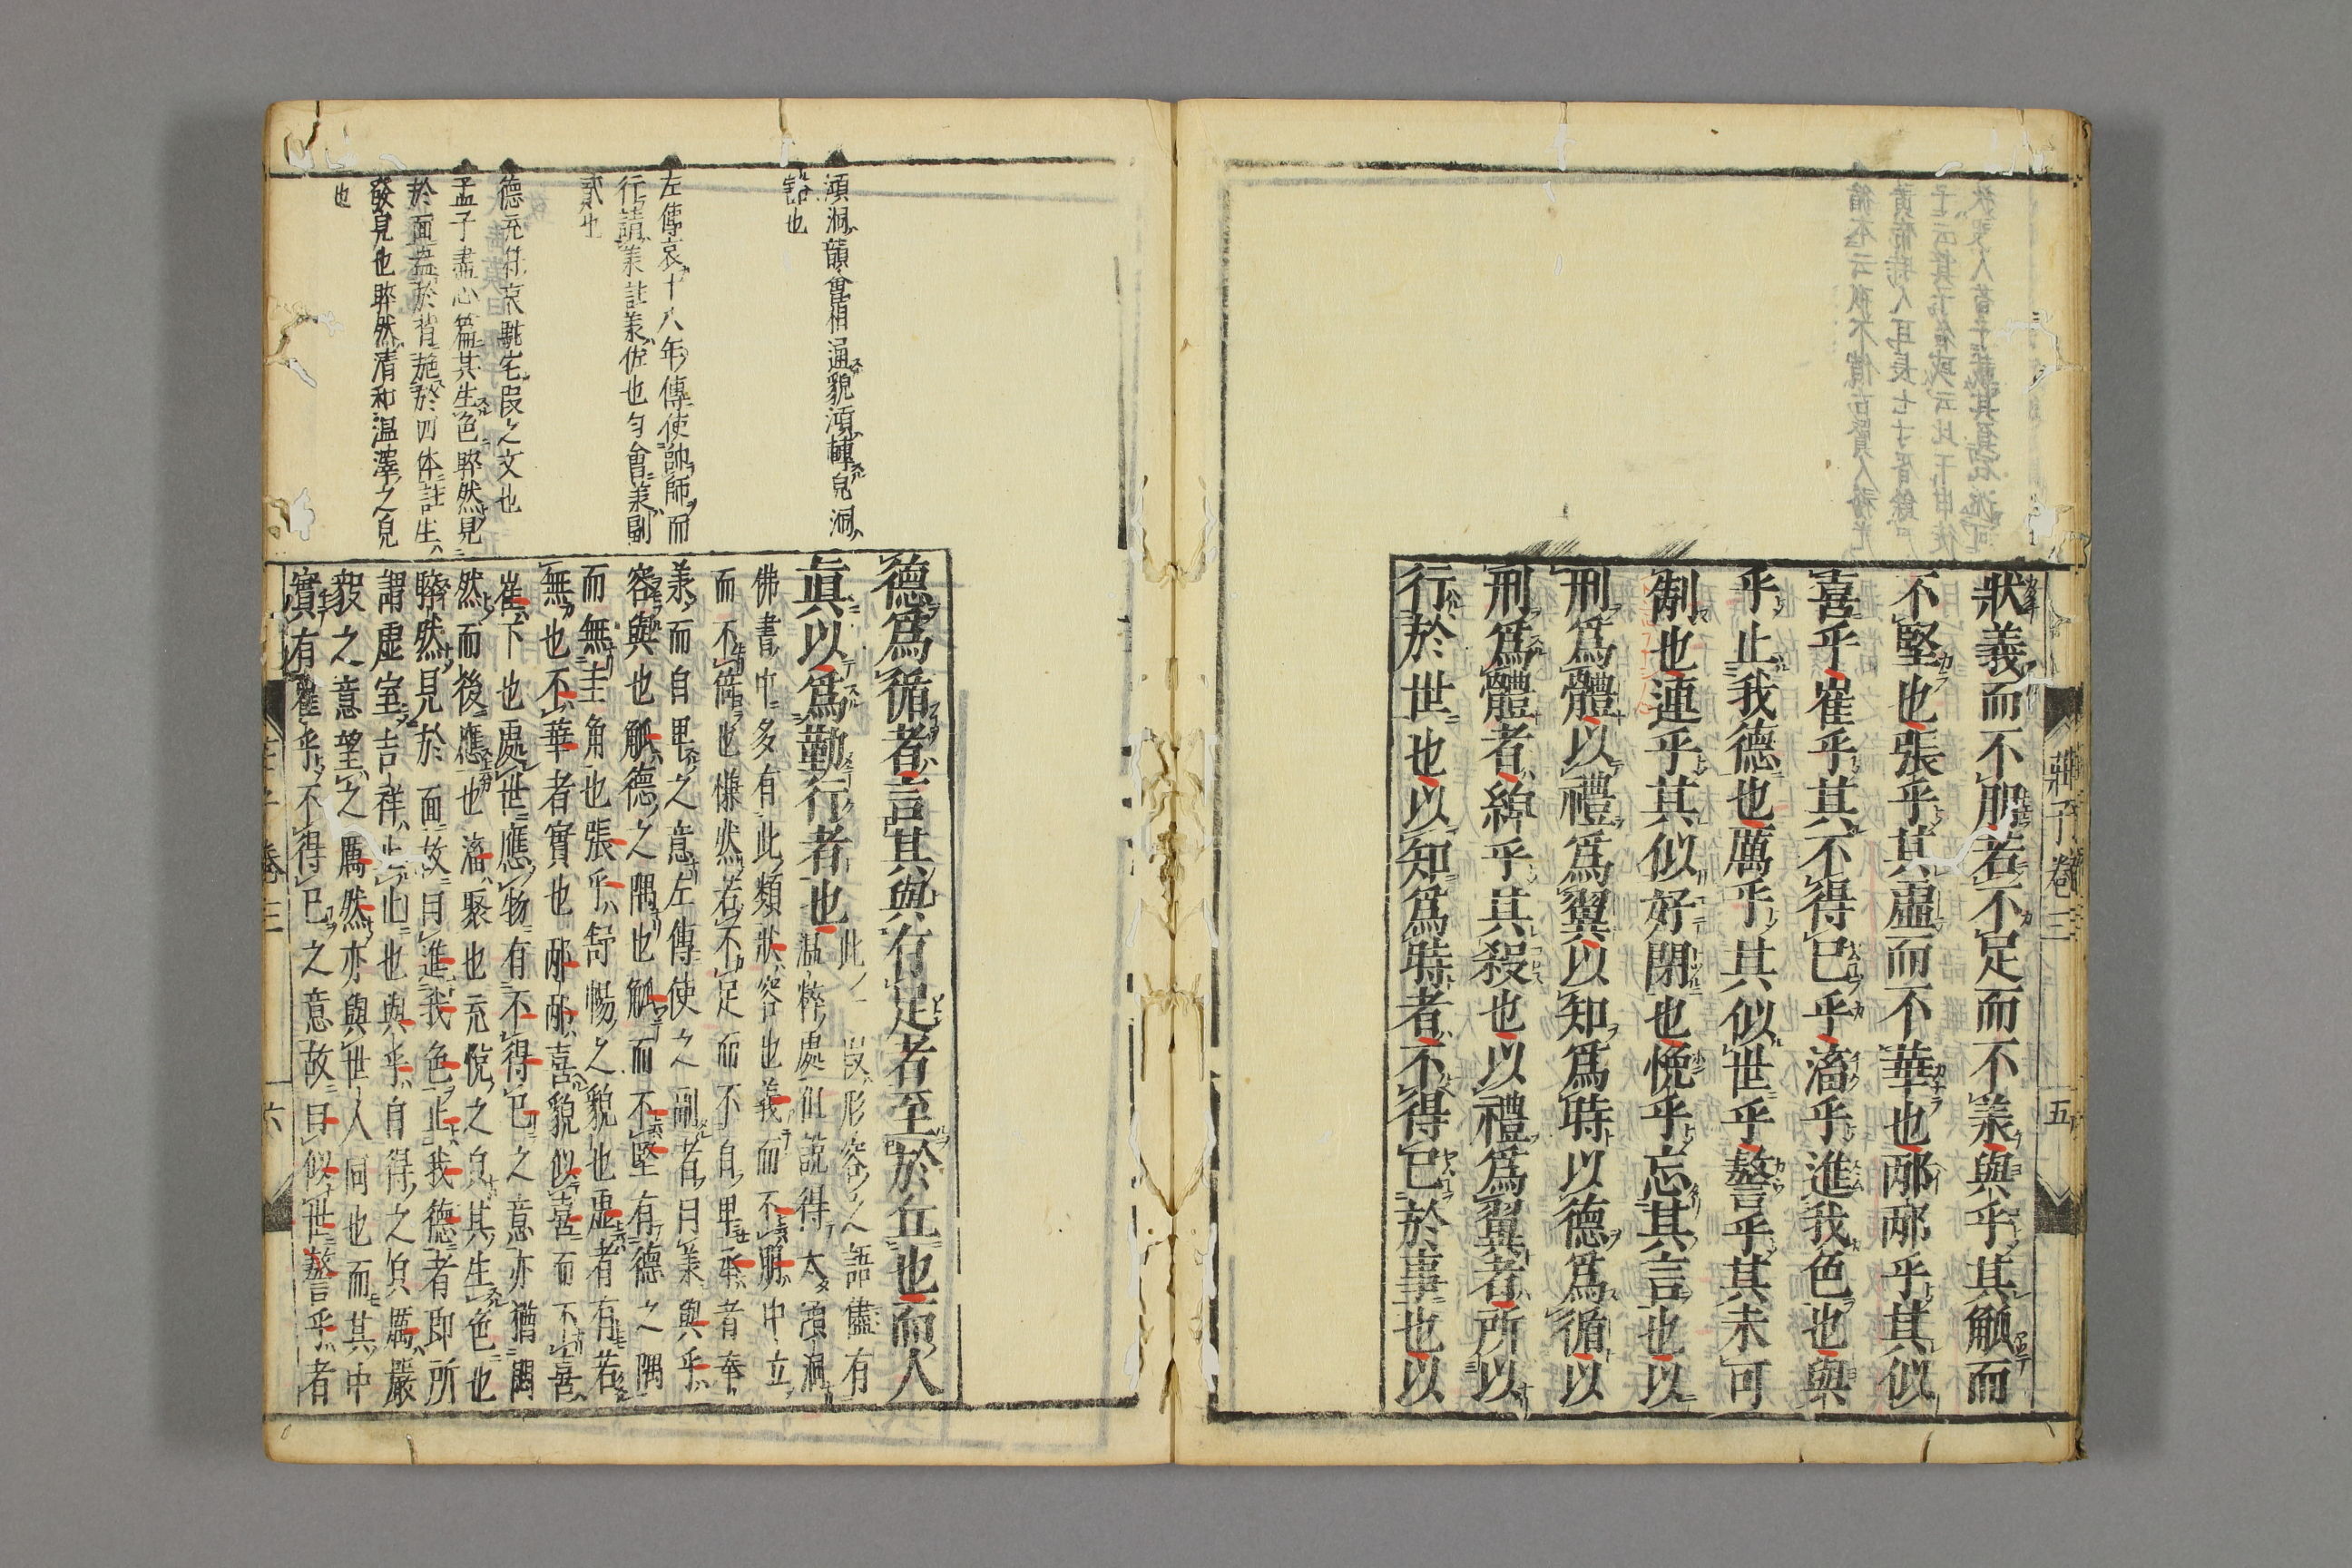 狀義而不朋若不足而不羕與乎其觚而
不堅也張乎其虛而不華也邴邴乎其似
喜乎崔乎其不得已乎滀乎進我色也與
乎止我德也厲乎其似世乎謷乎其未可
制也連乎其似好閉也悗乎忘其言也以
刑爲體以禮爲翼以知爲時以德爲循以
刑爲體者綽乎其殺也以禮爲翼者所以
行於世也以知爲時者不得已於事也以
莊子卷三
五
德爲循者言其與有足者至於丘也而人
眞以爲勤行者也此一段形容之語儘有
溫粹處但說得太澒洞
佛書中多有此類狀容也義而不朋中立
而不倚也慊然若不足而不自卑承者奉
羕而自卑之意左傳使之副者曰羕與乎
容與也觚德之隅也觚而不堅有德之隅
而無圭角也張乎舒暢之貌也虛者有若
無也不華者實也邴邴喜貌似喜而不喜
崔下也處世應物有不得已之意亦猶關
然而後應也滀聚也充悅之貌其生色也
睟然見於面故曰進我色止我德者即所
謂虛室吉祥止止也與乎自得之貌厲嚴
毅之意望之厲然亦與世人同也而其中
實有崔乎不得已之意故曰似世謷乎者
澒洞韻會相通貌澒轉皃洞
左傳哀十八年傳使帥師而
行請羕註羕佐也勻會羕副
貳也
德充符哀駘它段之文也
孟子盡心篇其生色睟然見
於面盎於背施於四体註生
發見也睟然清和溫澤之皃
也
莊子卷三
六